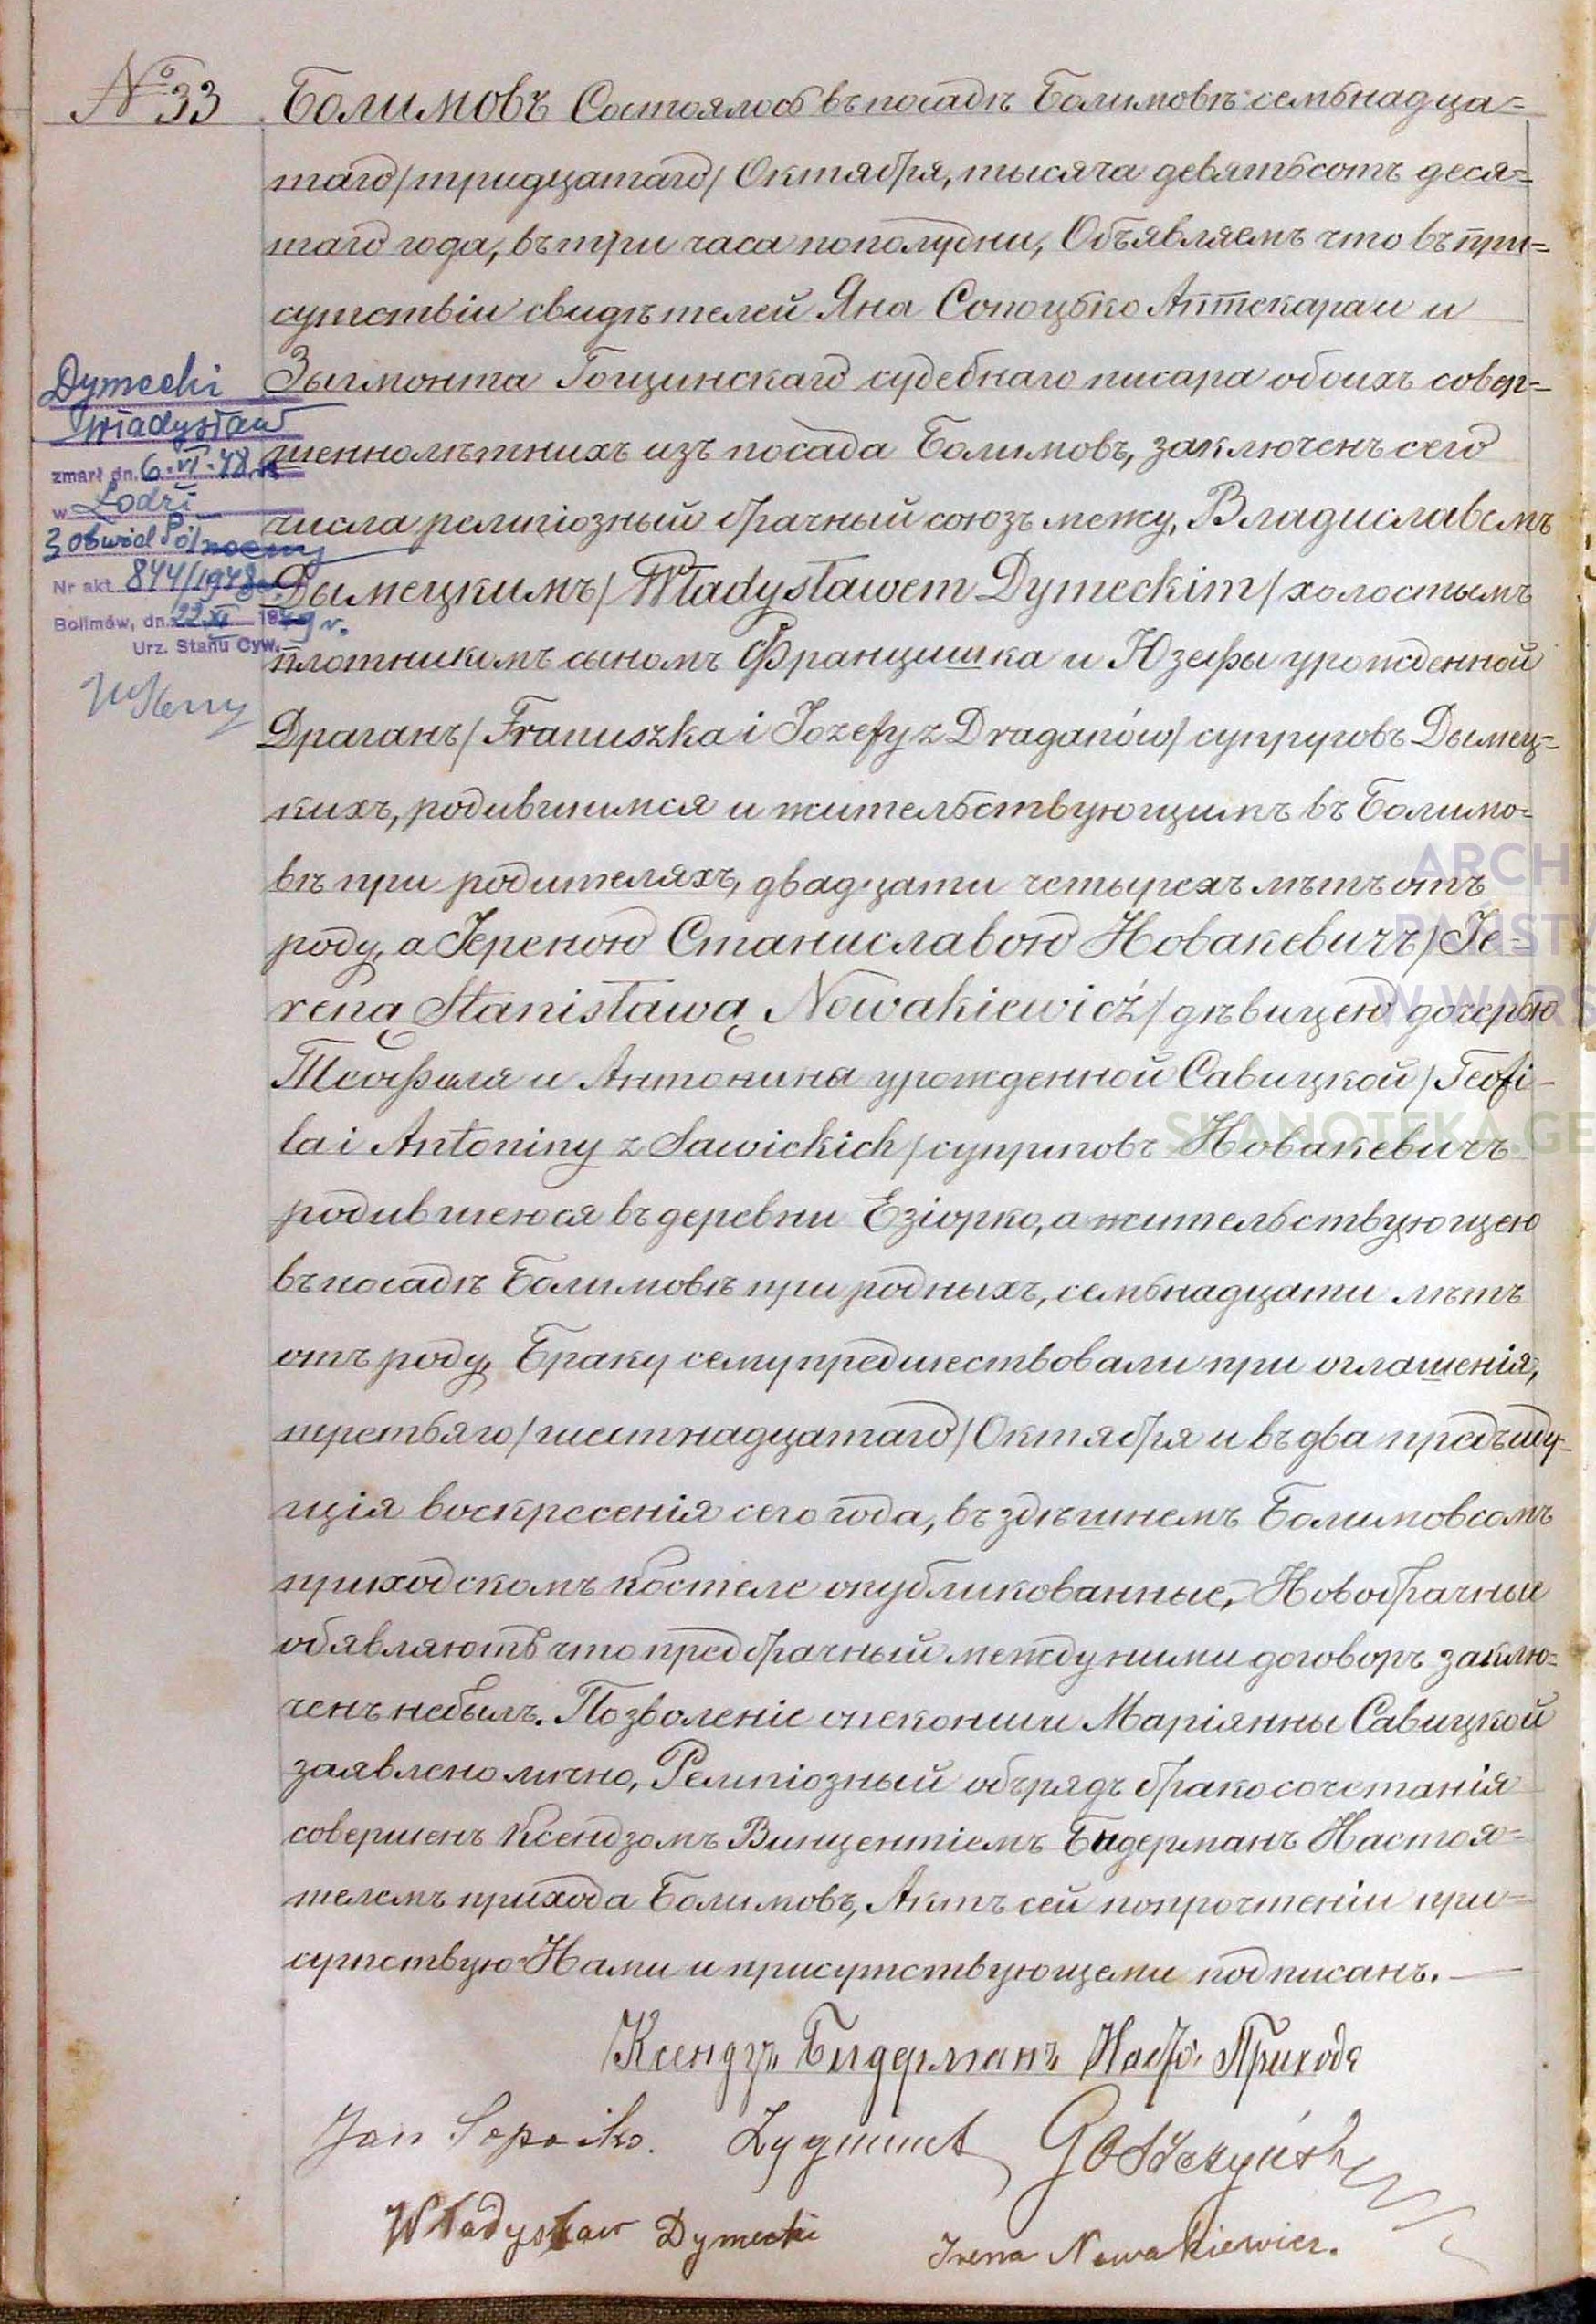 № 33
Болимовъ Состоялось въ посадѣ Болимовѣ семьнадца=
таго /тридцатаго/ Октября, тысяча девятьсотъ деся=
таго года, въ три часа пополудни, Объявляемъ что въ при=
сутствіи свидѣтелей Яна Сопоцько Аптекараи и
Зыгмонта Гощинскаго судебнаго писара обоихъ совер=
шеннолѣтнихъ изъ посада Болимовъ, заключенъ сего
числа религіозный брачный союзъ межу, Владиславемъ
Дымецкимъ /Władysławem Dymeckim/ холостымъ
плотникомъ сыномъ Францишка и Юзефы урожденной
Драганъ /Franciszka i Józefy z Draganów/ супруговъ Дымец=
кихъ, родившимся и жительствующимъ въ Болимо=
вѣ при родителяхъ, двадцати четырехъ лѣтъ отъ
роду, а Іереною Станиславою Новакевичъ /Ie-
reną Stanisławą Nowakiewicź/ дѣвицею дочерью
Теофиля и Антонины урожденной Савицкой /Teofi-
la i Antoniny z Sawickich/ супруговъ Новакевичъ
родившеюся въ деревни Езіорко, а жительствующею
въ посадѣ Болимовѣ при родныхъ, семьнадцати лѣтъ
отъ роду, Браку сему предшествовали при оглашенія,
третьяго /шестнадцатаго/ Октября и въ два предъиду-
щія воскресенія сего года, въ здѣшнемъ Болимовсомъ
приходскомъ костеле опубликованные, Новобрачные
обявляютъ что предбрачный между ними договоръ заклю=
ченъ небылъ. Позволеніе опеконши Маріянны Савицкой
заявлено лично, Религіозный обърядъ бракосочетанія
совершенъ Ксендзомъ Винцентіемъ Бидерманъ Настоя=
телемъ прихода Болимовъ, Актъ сей попрочтеніи при=
сутствую Нами и присутствующеми подписанъ.
Ксендзъ Бидерманъ Наст. Прихода
Jan Sopoćko. Zygmunt Gostczyński
Władysław Dymecki Irena Nowakiewicz.
Dymecki
Władysław
zmarł dn. 6.VI.48 r.
w Łodzi
3 obwód Północny
Nr akt. 844/1948
Bolimów, dn. 22.XI 1949 r.
Urz. Stanu Cyw.
ARCH
PAŃSTW
W WARS
SKANOTEKA.GE